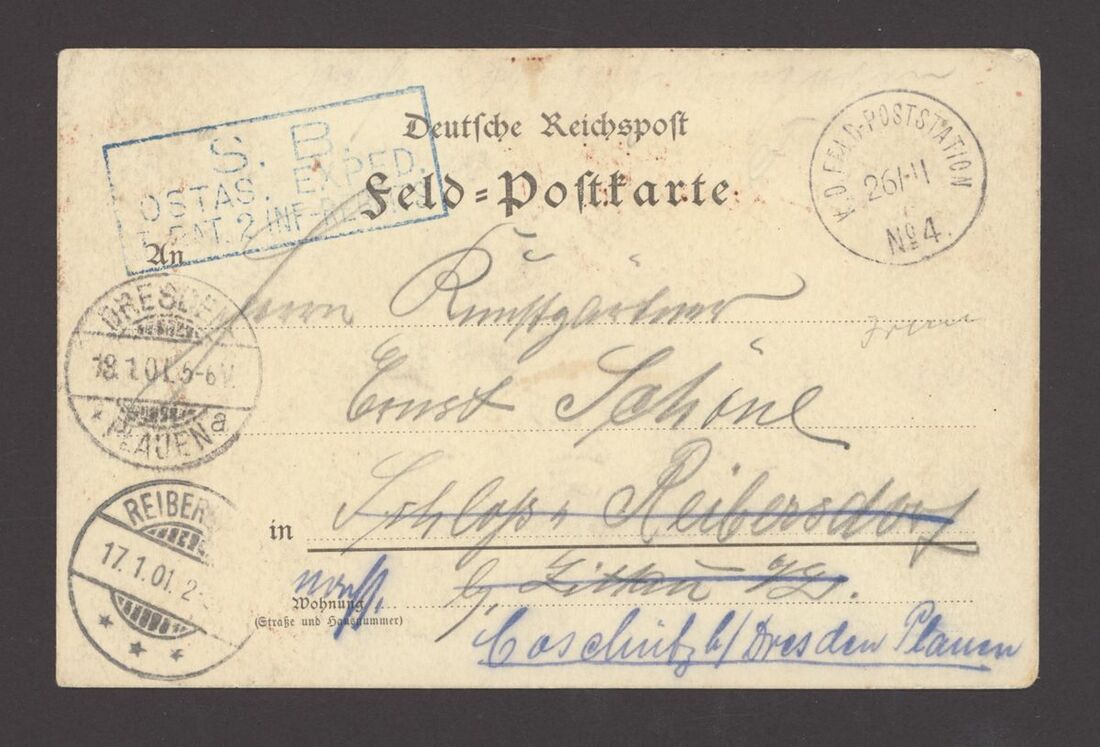 S. B.
OSTAS. EXPED.
BAT. 2 INF-REG
Deutsche Reichspost
Feld=Postkarte
K.D. FELD-POSTSTATION
26/11
No 4.
An
Herrn Kunstgärtner
Ernst Schöne
DRESDEN
18.1.01.5-6V.
* PLAUEN a
in Schloss Reibersdorf
b/ Zittau i/S.
REIBER
17.1.01. 2-
* * *
Wohnung
(Straße und Hausnummer)
Coschütz b/Dresden Plauen